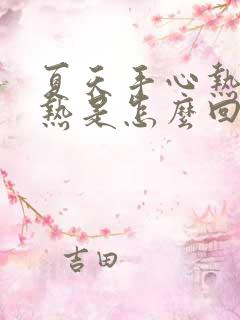 夏天手心熱
熱是怎麼回
吉田